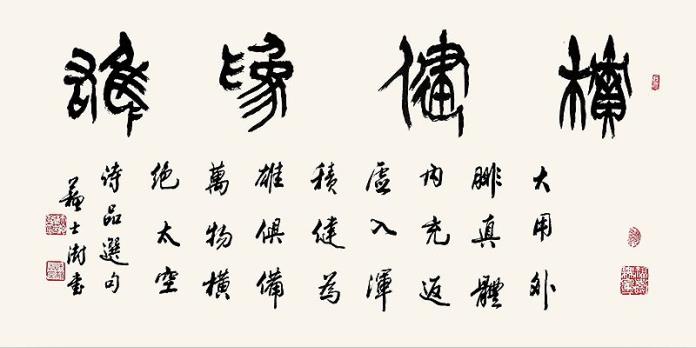 橫健雄
大用外
腓真體
内充返
虛入渾
積健為
雄俱備
萬物橫
絕太空
詩品選句
蘇士澍書